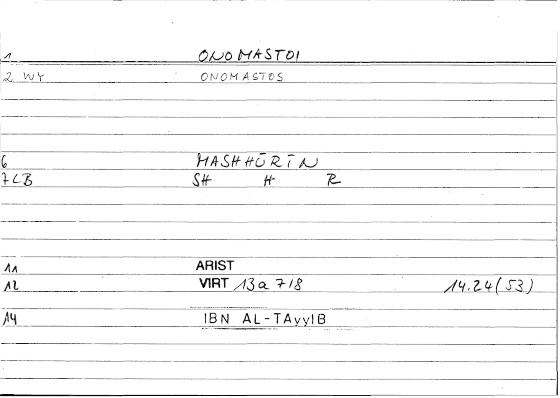 1 ONOMASTOI
2 WY ONOMASTOS
6 MASHHŪRĪN
7 LB SH H R
11 ARIST
12 VIRT 13a 7/8 14.24(53)
14 IBN AL-TAyyIB